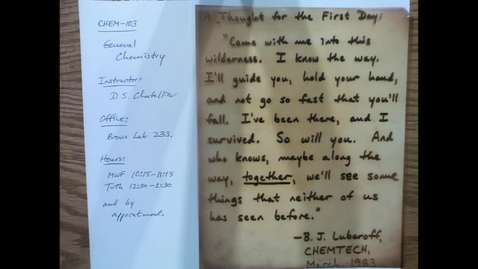 CHEM-103
General
Chemistry
Instructor:
D.S.
Office:
Brown Lab 233.
Hours:
MWF 10:15-11:15
TuTh 12:30-1:30
and by
appointment.
A Thought for the First Day:
"Come with me into this
wilderness. I know the way.
I'll guide you, hold your hand,
and not go so fast that you'll
fall. I've been there, and I
survived. So will you. And
who knows, maybe along the
way, together, we'll see some
things that neither of us
has seen before."
—B. J. Luberoff,
CHEMTECH,
March, 1983